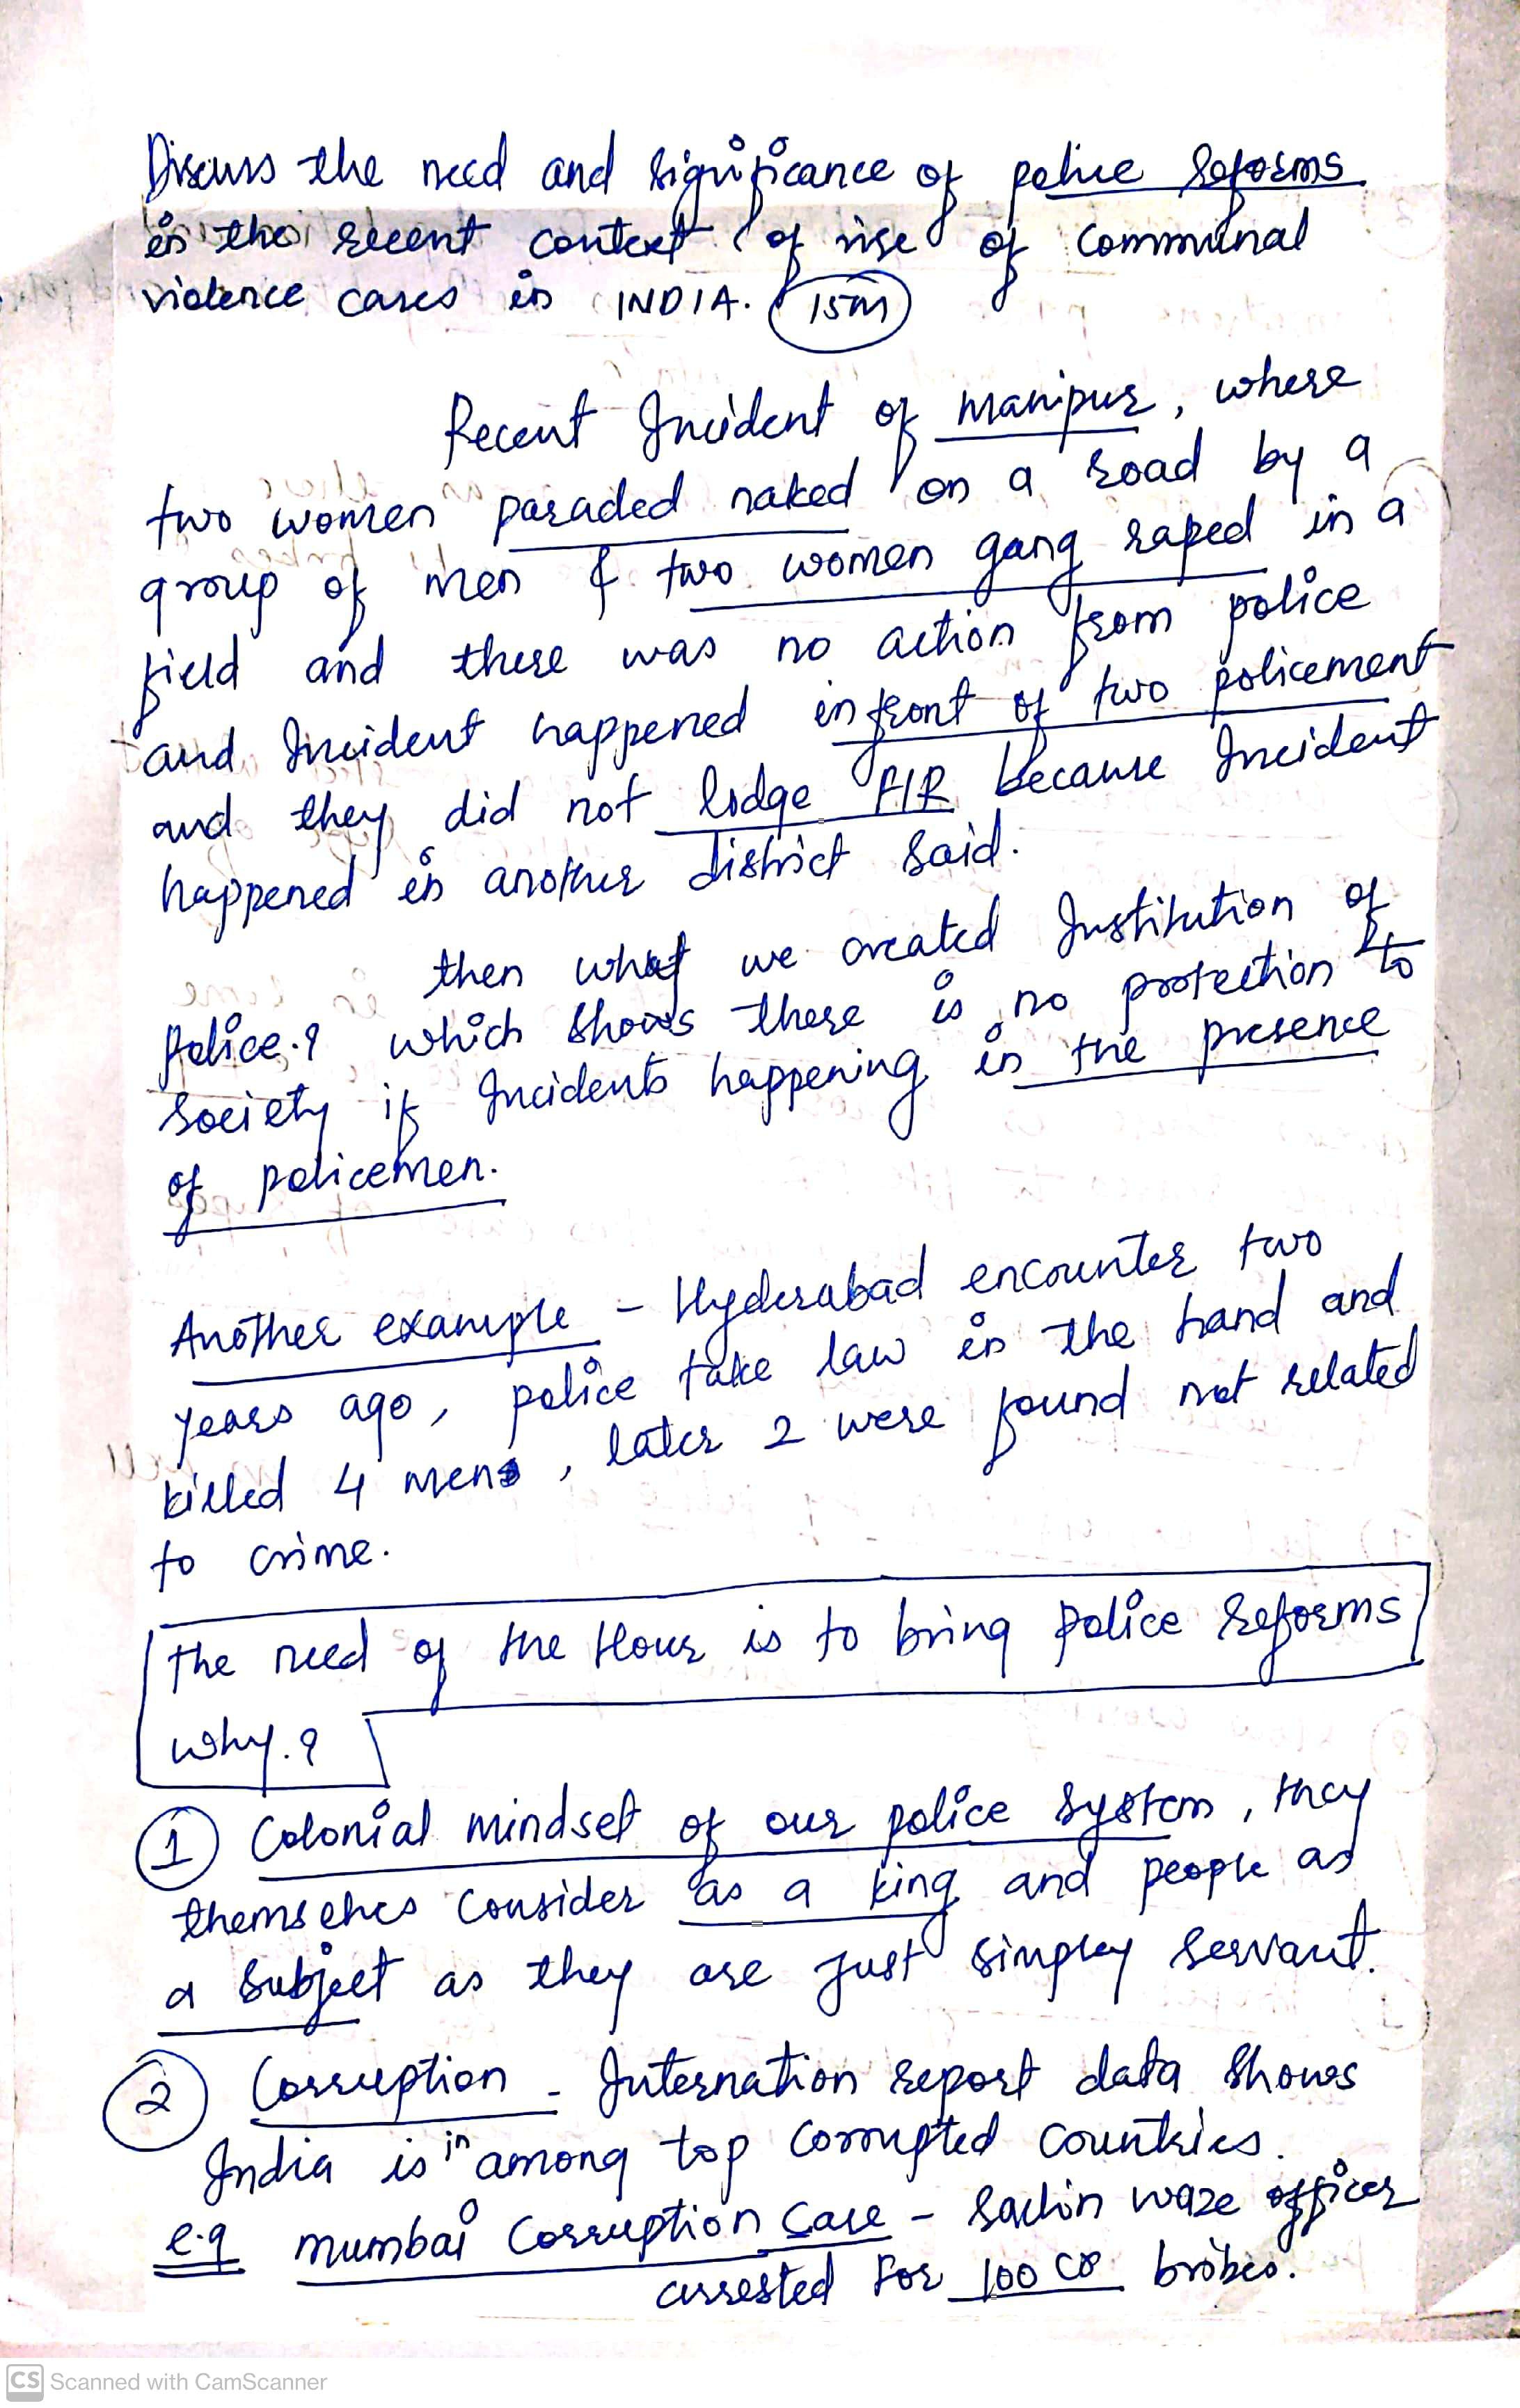 Discuss the need and significance of police reforms
in the recent context of rise of communal
violence cases in INDIA. 15m
Recent Incident of Manipur, where
two women paraded naked on a road by a
group of men & two women gang raped in a
field and there was no action from police
and Incident happened in front of two policement
and they did not lodge FIR because Incident
happened in another district said.
then what we created Institution of
Police.? which shows there is no protection to
society if Incidents happening in the presence
of policemen.
Another example - Hyderabad encounter two
years ago, police take law in the hand and
killed 4 mens, later 2 were found not related
to crime.
The need of the Hour is to bring Police reforms
why.?
1 Colonial mindset of our police system, they
themselves consider as a king and people as
a subject as they are just simpley servant.
2 Corruption - Internation report data shows
India is in among top corrupted countries.
e.g Mumbai Corruption case - Sachin waze officer
arrested for 100 cr bribes.
CS Scanned with CamScanner